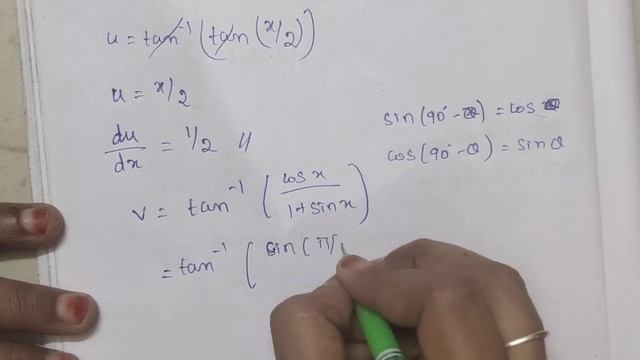 u = tan⁻¹ (tan (x/2))
u = x/2
du/dx = 1/2 //
sin(90° - θ) = cos θ
cos(90° - θ) = sin θ
v = tan⁻¹ (cos x / 1 + sin x)
= tan⁻¹ ( sin ( π/